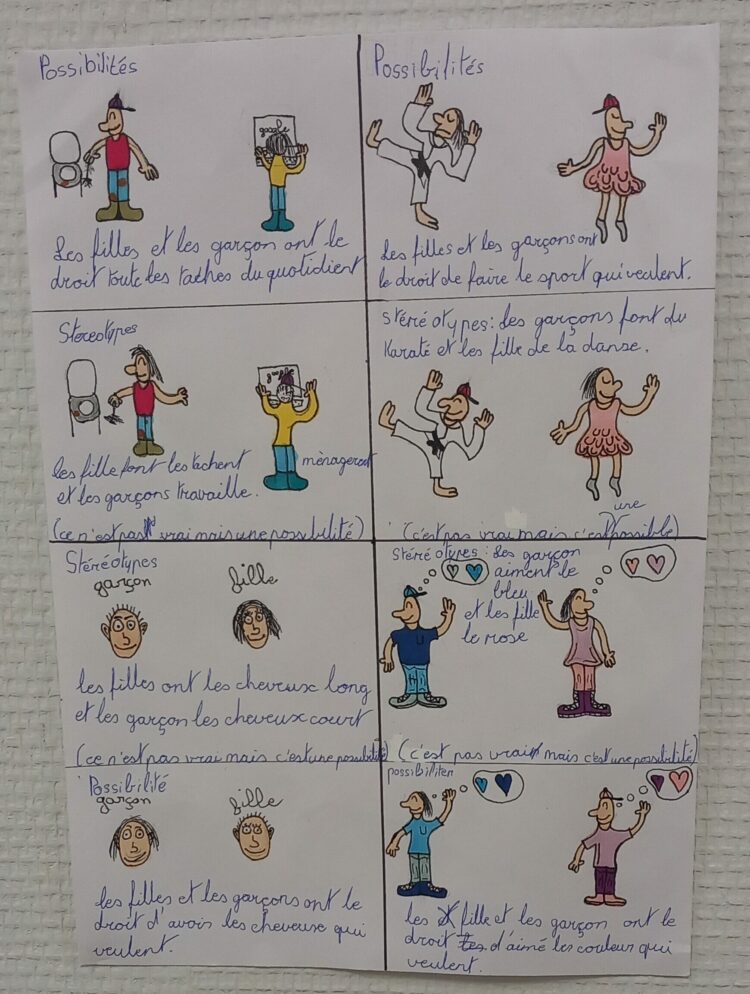 Possibilités
google
Les filles et les garçon ont le
droit toute les taches du quotidient
Possibilités
Les filles et les garçons ont
le droit de faire le sport qui veulent.
Stéréotypes
google
les fille font les tachent ménagerent
et les garçons travaille.
(ce n'est pas vrai mais une possibilité)
Stéréotypes: Les garçons font du
Karaté et les fille de la danse.
(c'est pas vrai mais c'est une possible)
Stéréotypes
garçon fille
les filles ont les cheveux long
et les garçon les cheveux court
(ce n'est pas vrai mais c'est une possibilité)
Stéréotypes: Les garçon
aiment le
bleu
et les fille
le rose
(c'est pas vrai mais c'est une possibilité)
Possibilité
garçon fille
les filles et les garçons ont le
droit d'avois les cheveuse qui
veulent.
possibiliter
les fille et les garçon ont le
droit d'aimé les couleur qui
veulent.